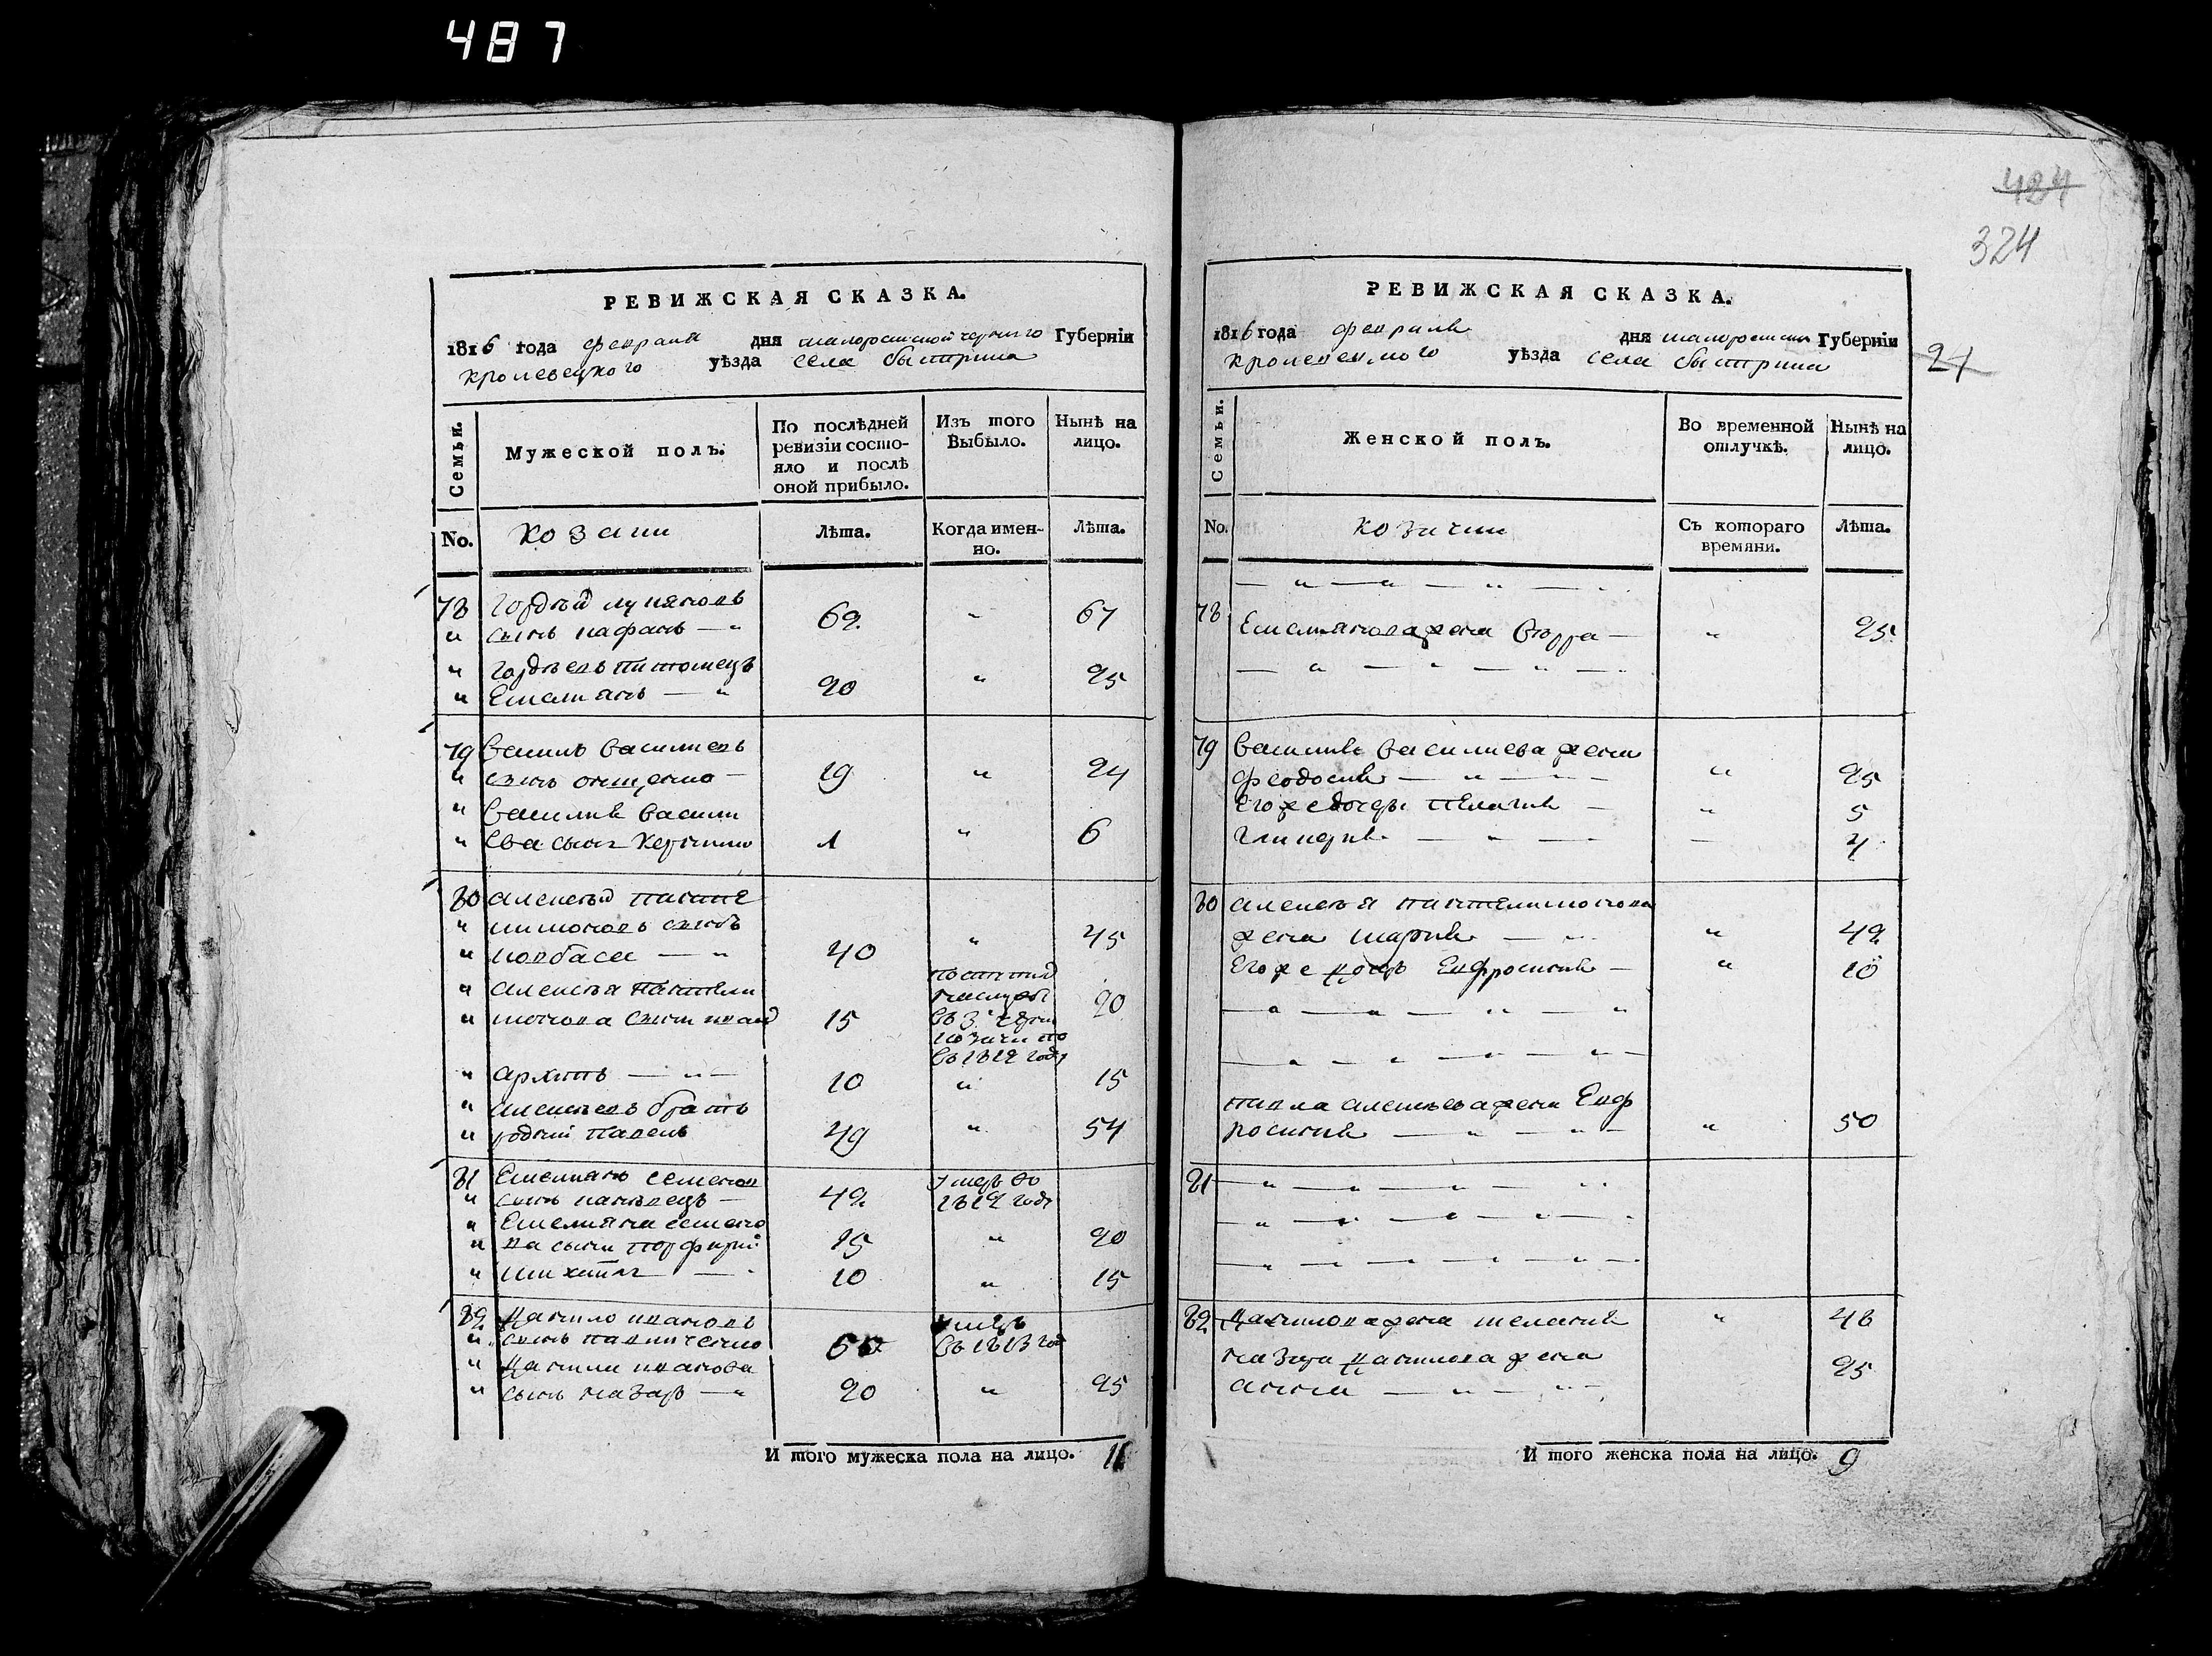 487
РЕВИЖСКАЯ СКАЗКА.
1816 года февраля дня малоросийской черниго Губерніи
кролевецкого уѣзда села быстрика
Семьи.
Мужеской полъ.
По послѣдней ревизіи состояло и послѣ оной прибыло.
Изъ того Выбыло.
Нынѣ на лицо.
No.
козаки
Лѣта.
Когда именно.
Лѣта.
78 гордѣй лукяновъ
сынъ кафанъ — 62 67
гордѣевъ питомецъ
Емелянъ — 20 25
79 василь василиевъ
сынъ онищенко — 19 24
василия васили
ева сынъ 1 6
80 алексѣй панте
лимоновъ сынъ
ковбаса — 40 45
алексѣя пантели
монова сыни иванъ 15 20
въ 1812 году
архипъ — 10 15
алексѣевъ братъ
родний павелъ 49 54
81 Емелиянъ семенов
сынъ — 42 умеръ во 1812 годе
Емелияна семено
ва сыни порфирий 15 20
михайла — 10 15
82 данило ивановъ
сынъ павличенко умеръ въ 1813 год
данили иванова
сынъ назаръ — 20 25
И того мужеска пола на лицо. 11
424
324
РЕВИЖСКАЯ СКАЗКА.
1816 года февраля дня малоросийской Губерніи
кролевецкого уѣзда села быстрика
21
Семьи.
Женской полъ.
Во временной отлучкѣ.
Нынѣ на лицо.
No.
козачки
Съ котораго времяни.
Лѣта.
78
Емелянова жена — 25
79 василия василиева жена
феодосия — 25
Его же дочеры пелагия — 5
гликерия — 4
80 алексѣя пантелимонова
жена мария — 42
Его же дочеръ Евфросиния — 10
павла алексѣева жена Евф
росиния — 50
81
82 данилова жена мелания 48
назара данилова жена
анна — 25
И того женска пола на лицо. 9